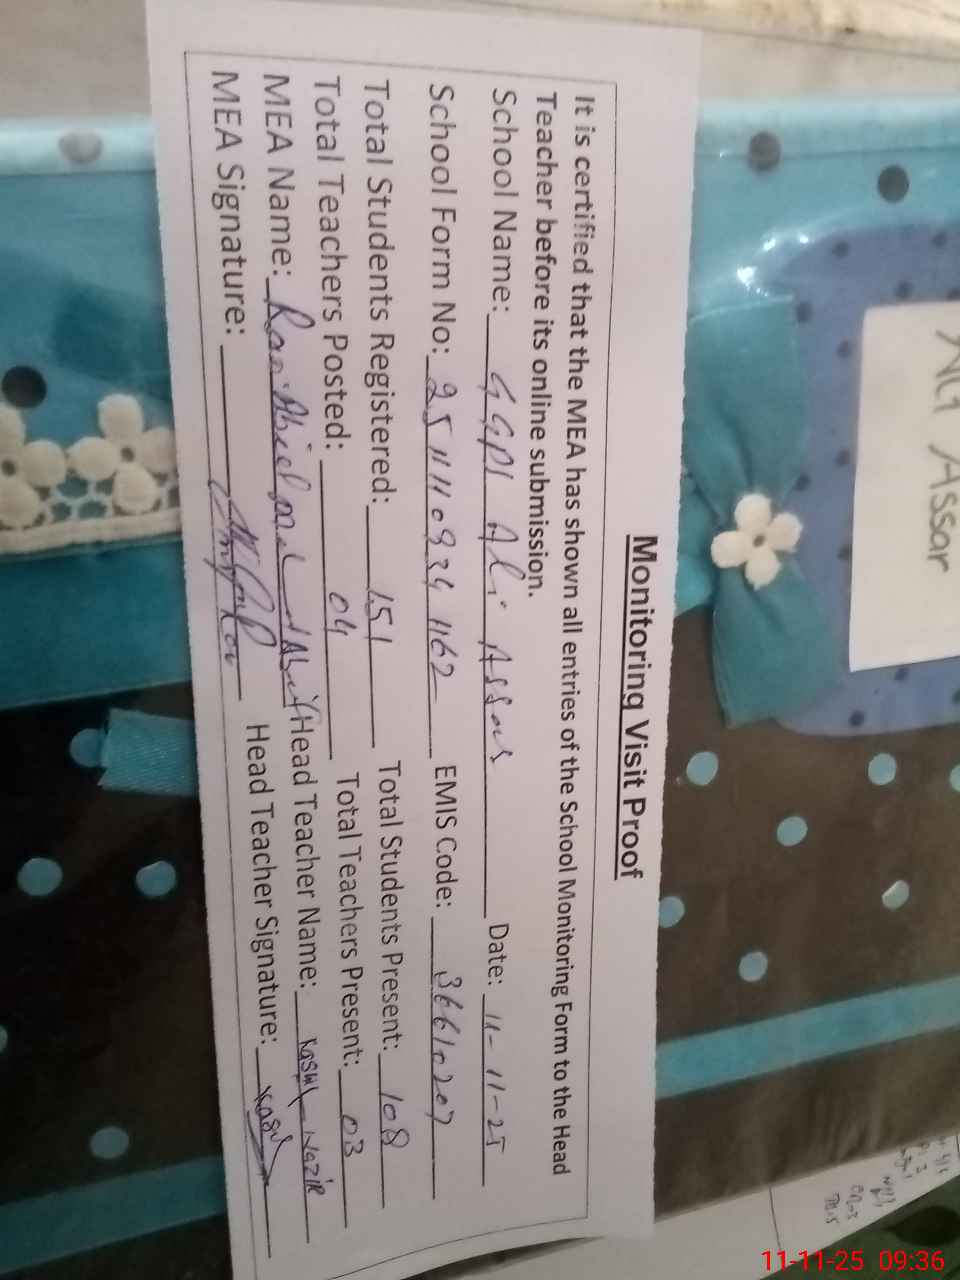 Monitoring Visit Proof
It is certified that the MEA has shown all entries of the School Monitoring Form to the Head
Teacher before its online submission.
School Name: GGPS Ali Assar Date: 11-11-25
School Form No: 25111109341162 EMIS Code: 36610207
Total Students Registered: 151 Total Students Present: 108
Total Teachers Posted: 04 Total Teachers Present: 03
MEA Name: Head Teacher Name: Nazir
MEA Signature: Head Teacher Signature:
Assar
11-11-25 09:36